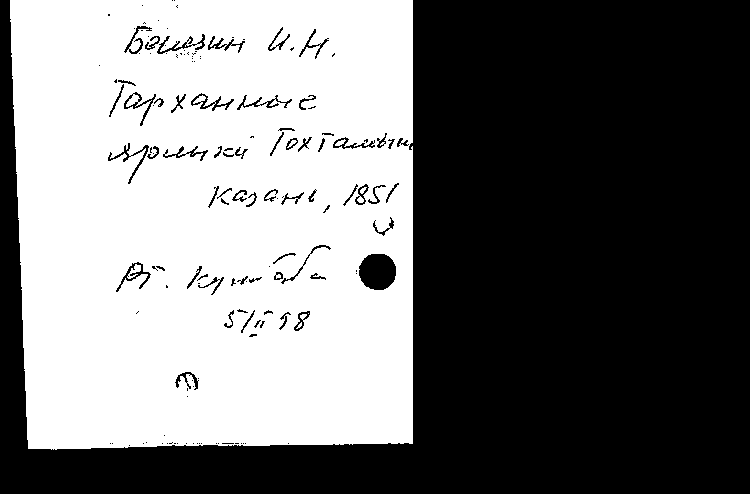 Березин И.Н.
Тарханные
ярлыки Тохтамыш
Казань, 1851
5/II 98